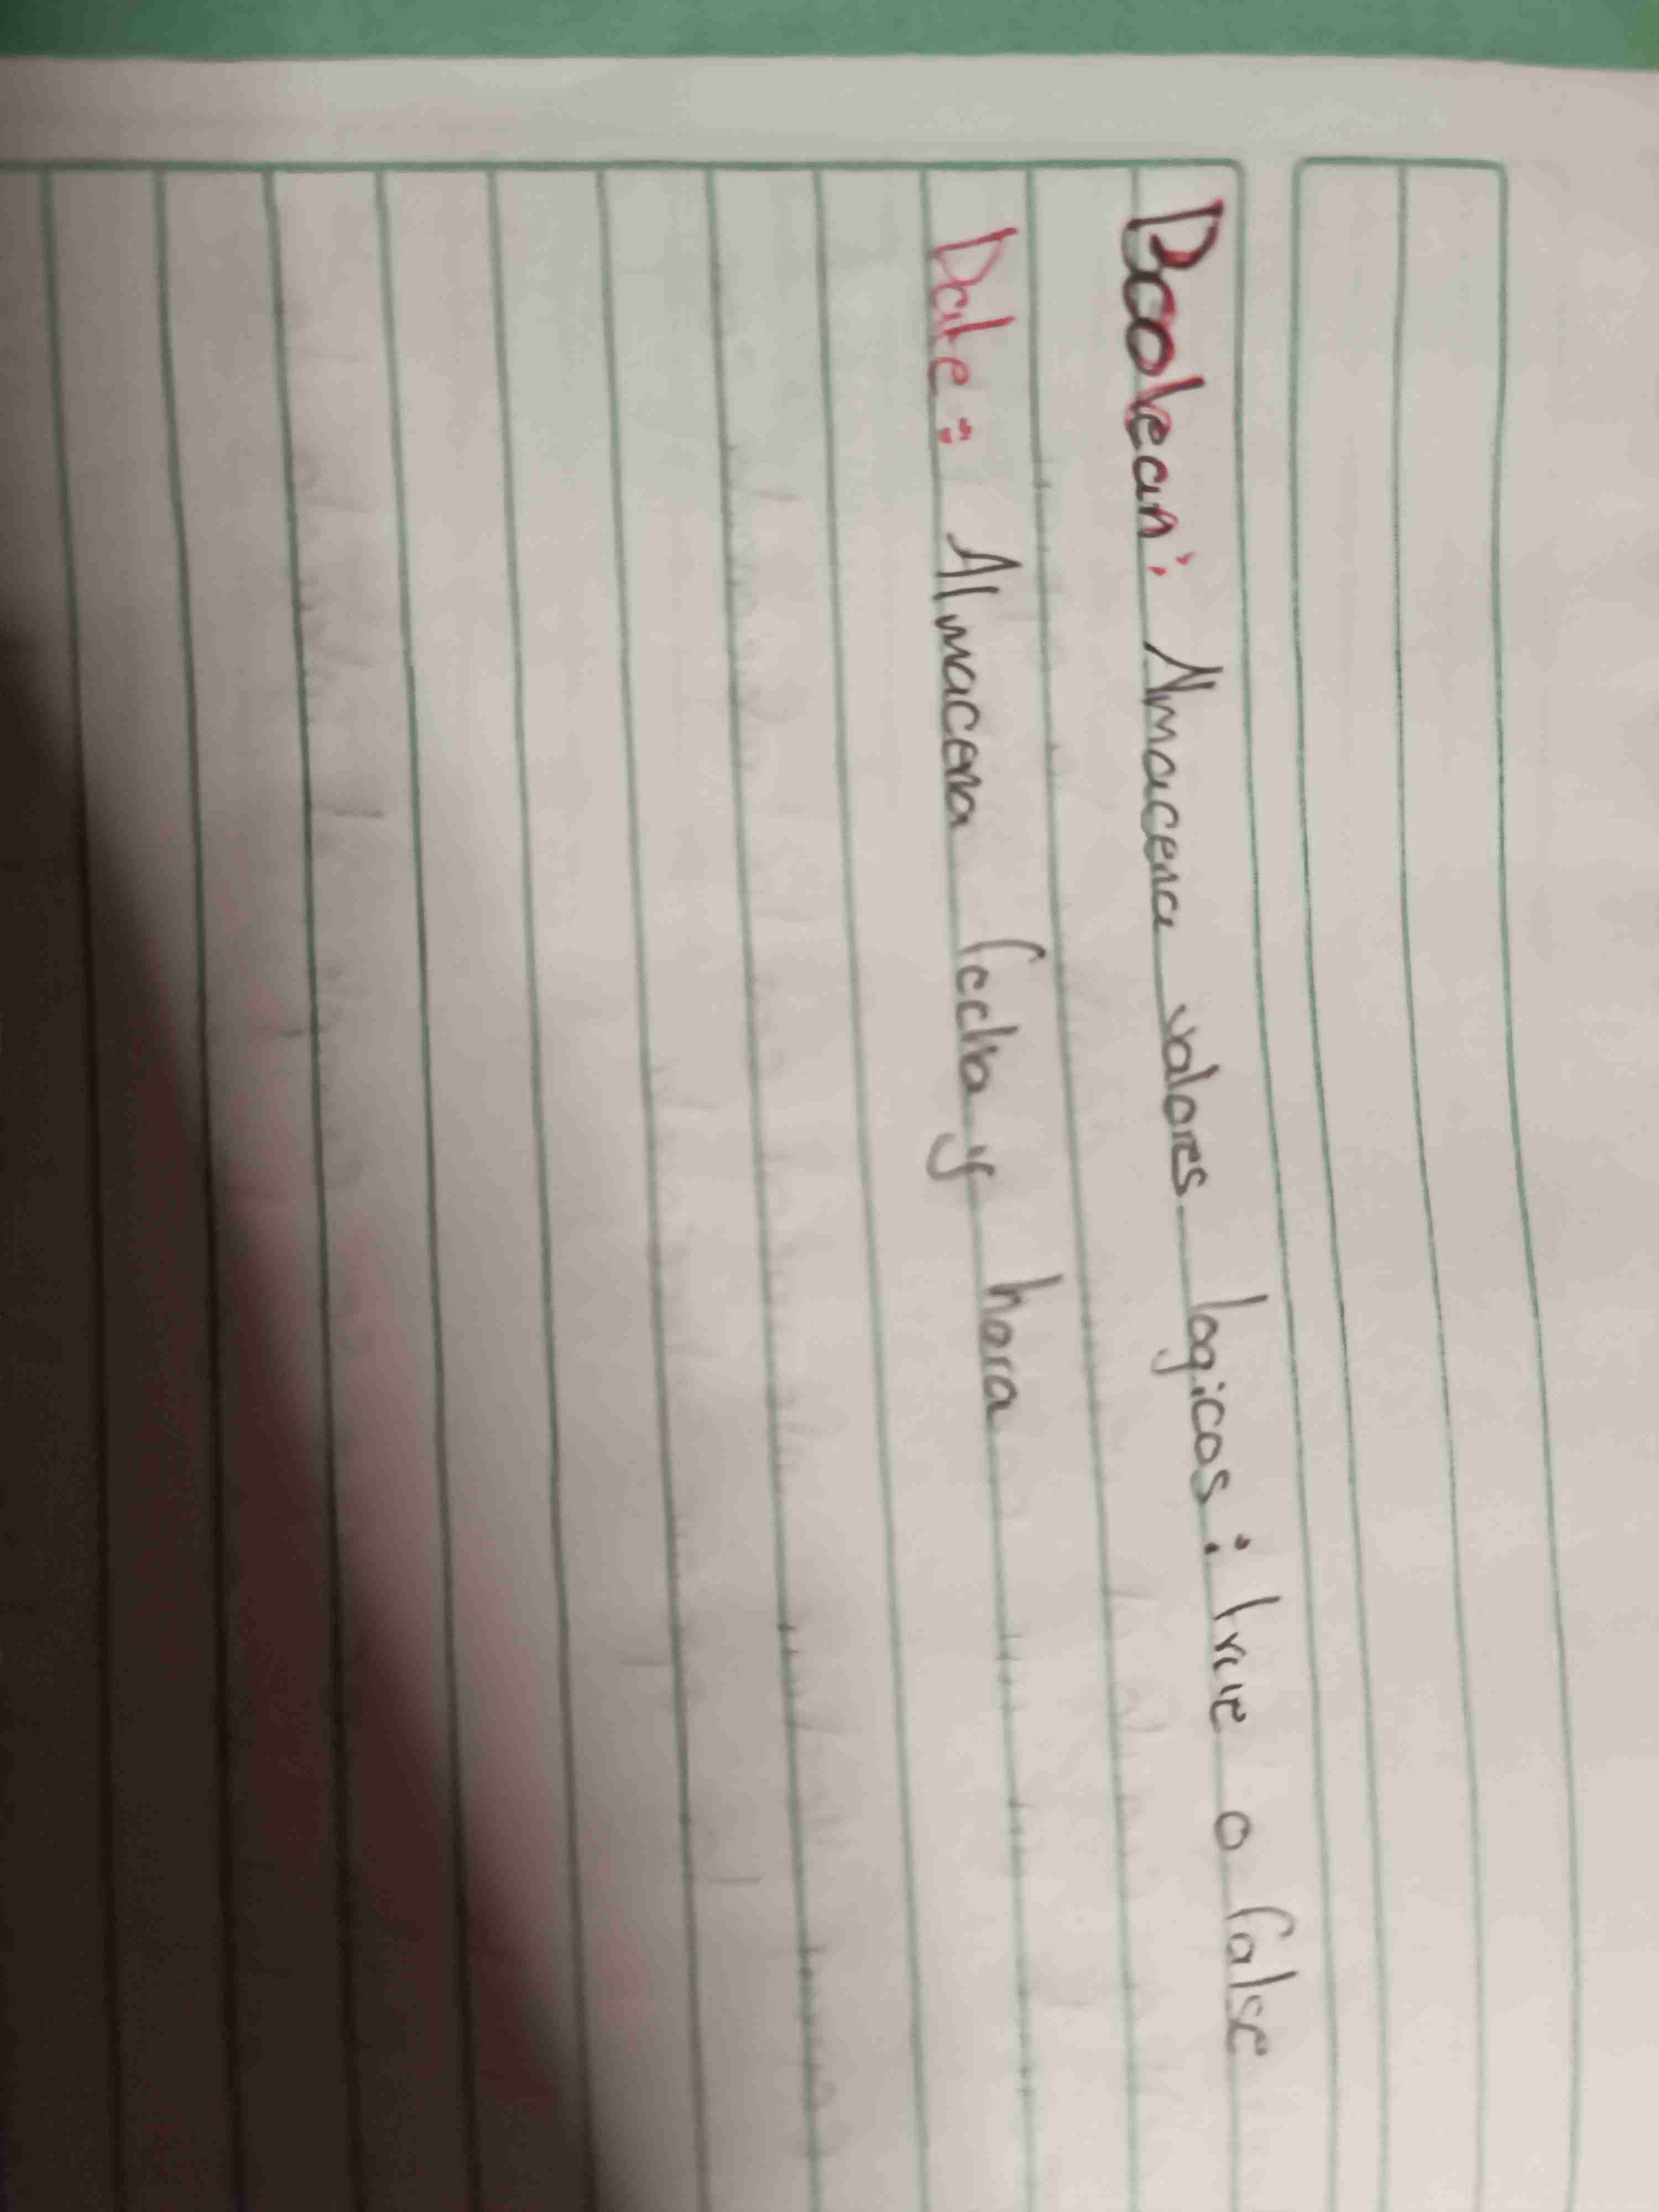 Boolean: Almacena valores logicos: true o false
Date: Almacena fecha y hora